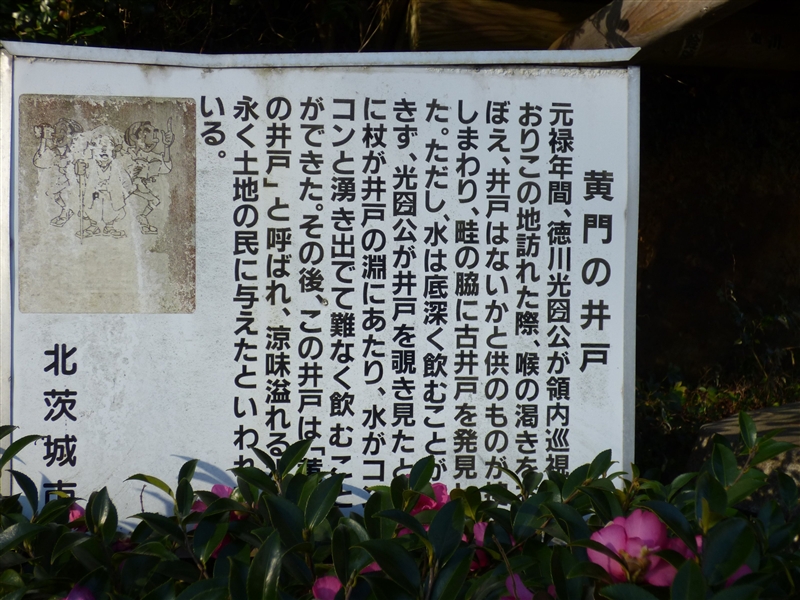 黄門の井戸
元禄年間、徳川光圀公が領内巡視
おりこの地訪れた際、喉の渇きを
ぼえ、井戸はないかと供のものが
しまわり、畦の脇に古井戸を発見
た。ただし、水は底深く飲むことが
きず、光圀公が井戸を覗き見たと
に杖が井戸の淵にあたり、水がコ
コンと湧き出でて難なく飲むこと
ができた。その後、この井戸は「黄
の井戸」と呼ばれ、涼味溢れる
永く土地の民に与えたといわれ
いる。
北茨城市